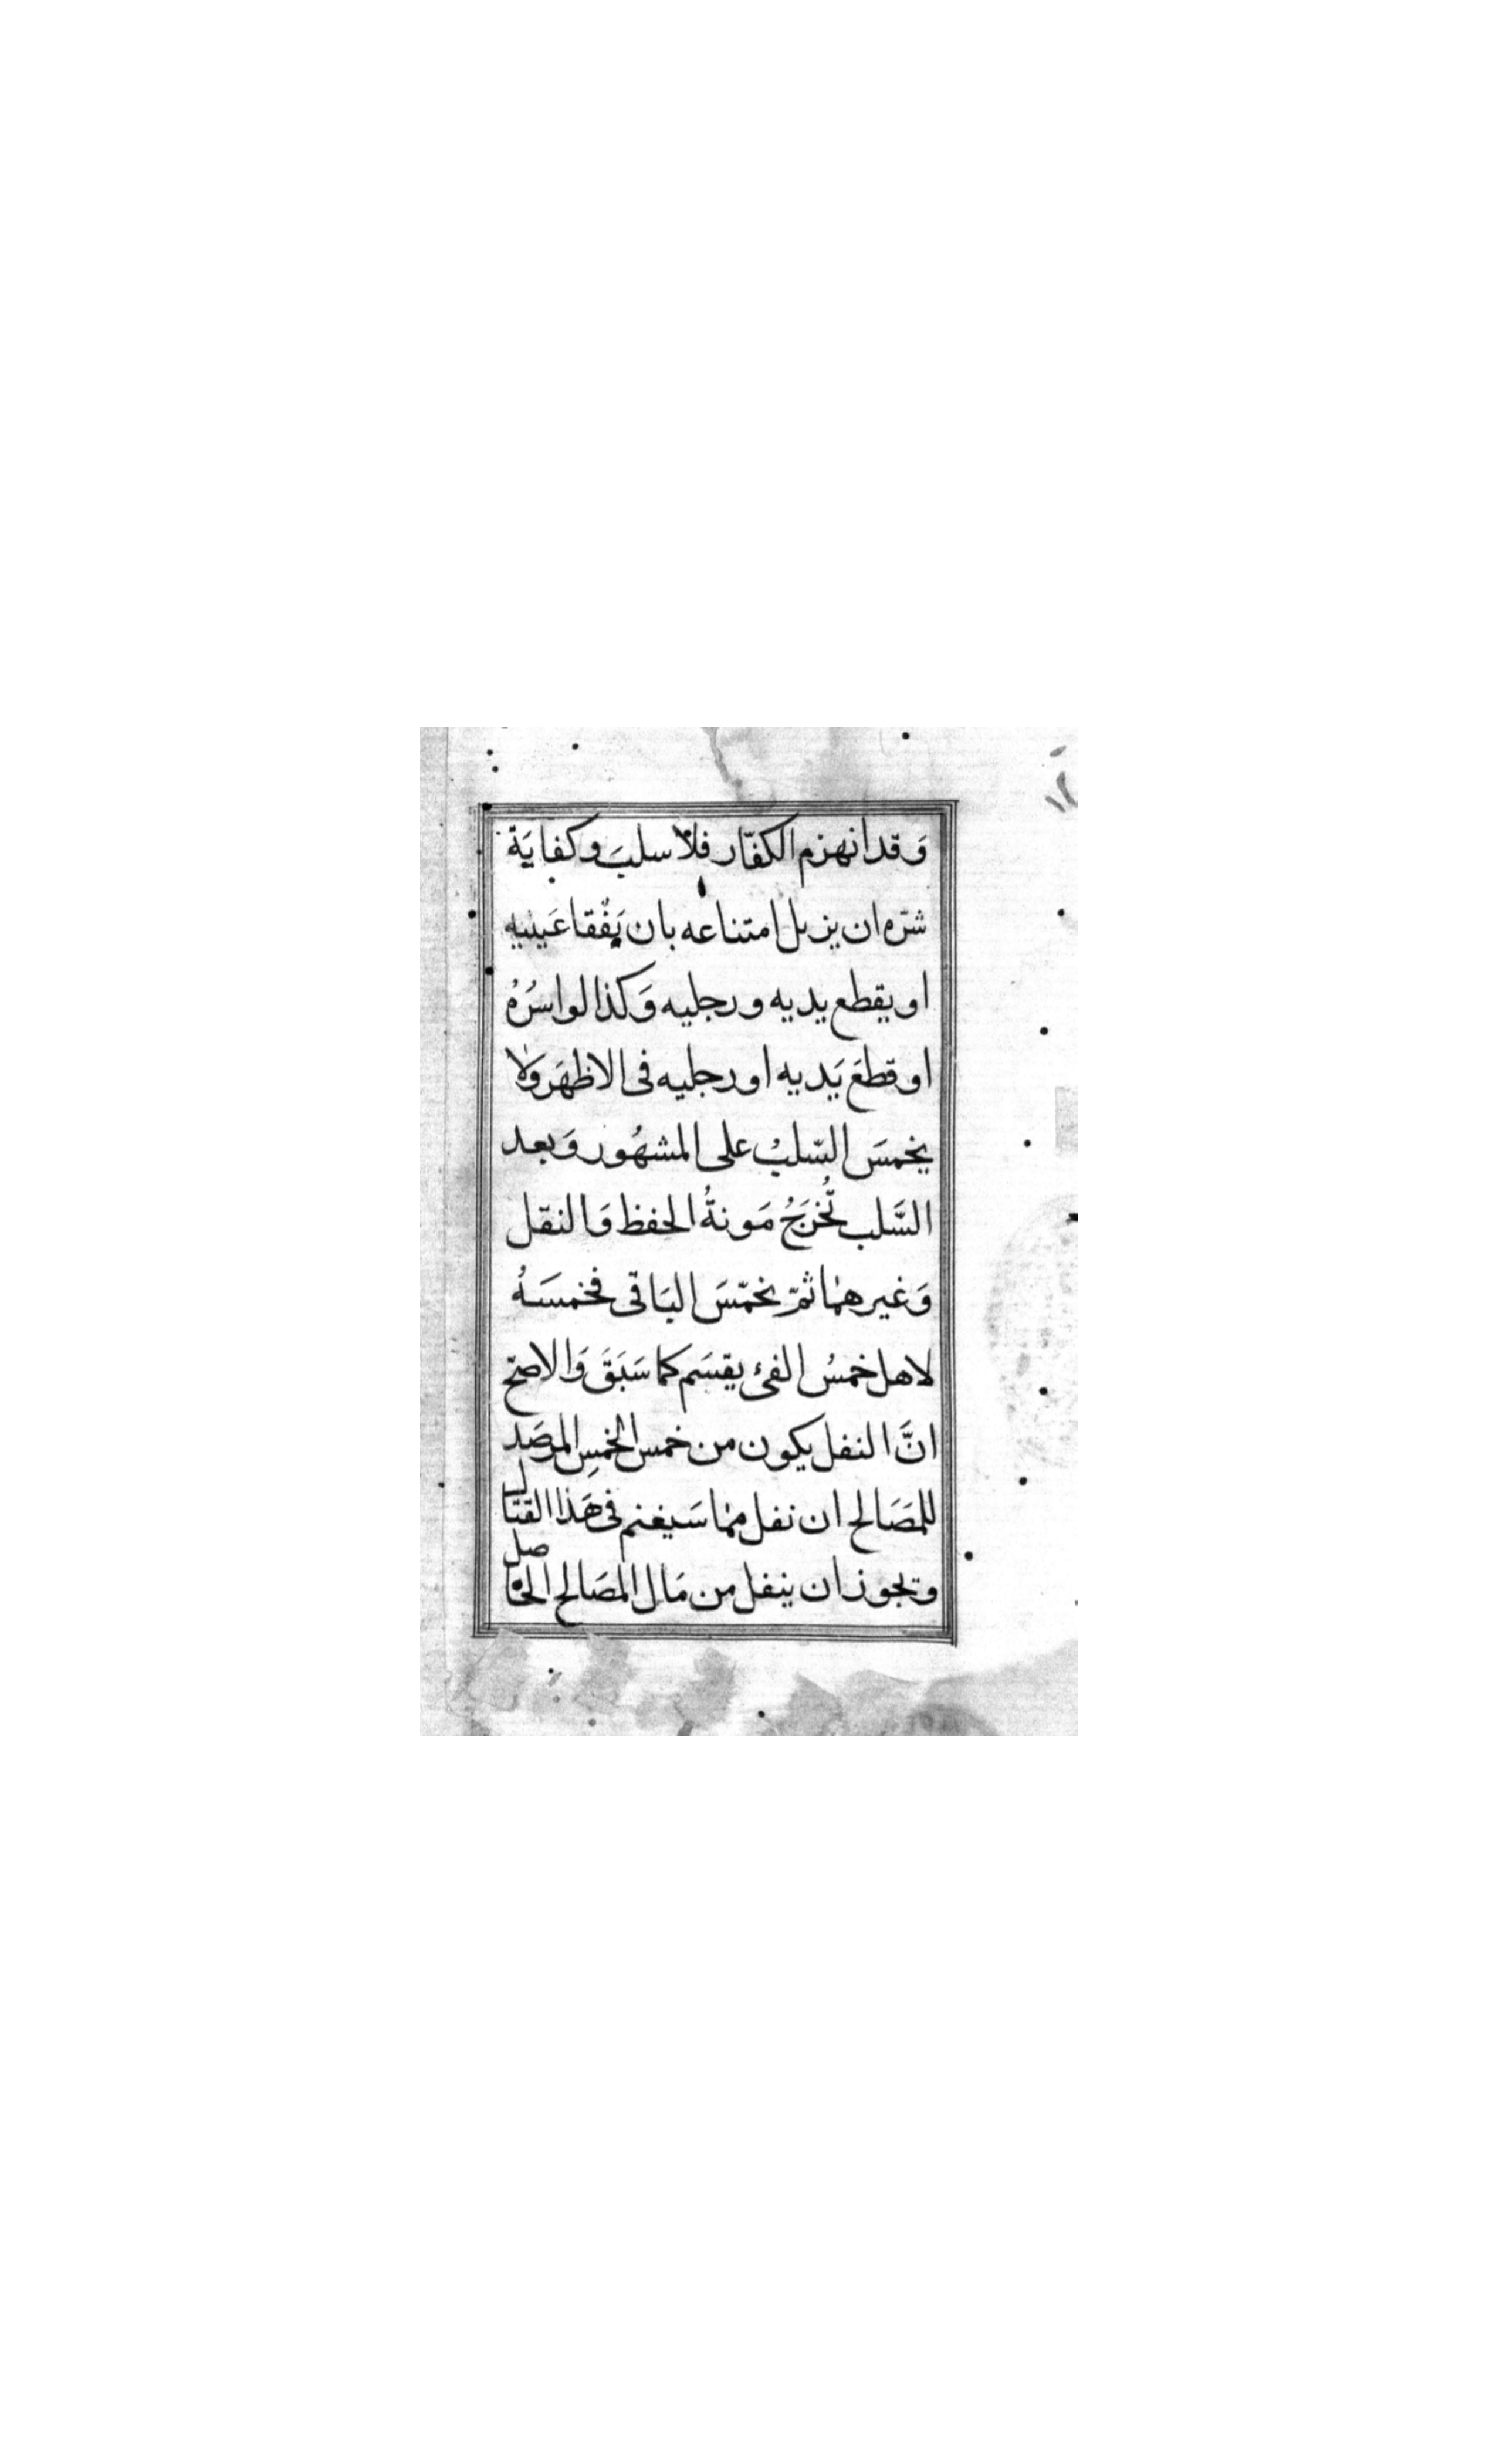 وَقد انهزم الكفّار فلا سلبَ وكفايَة
شرّه ان يزيل امتناعه بان يَفْقا عَينيه
او يقطع يديه ورجليه وَكذا لو اسَرَهُ
او قطعَ يَديه او رجليه فى الاظهَر وَلا
يخمسَ السّلبُ على المشهُور وَبعد
السَّلب تُخرَجُ مَونةُ الحفظ وَالنقل
وَغيرهما ثمّ يخمّسَ البَاقى فخمسَهُ
لاهل خمسُ الفئ يقسَم كما سَبَقَ وَالاصحّ
انَّ النفل يكون من خمس الخمسِ المرصَد
للمصَالح ان نفل مما سَيغنم فى هَذا القتال
ويجوز ان ينفل من مَال المصَالح الحاصل